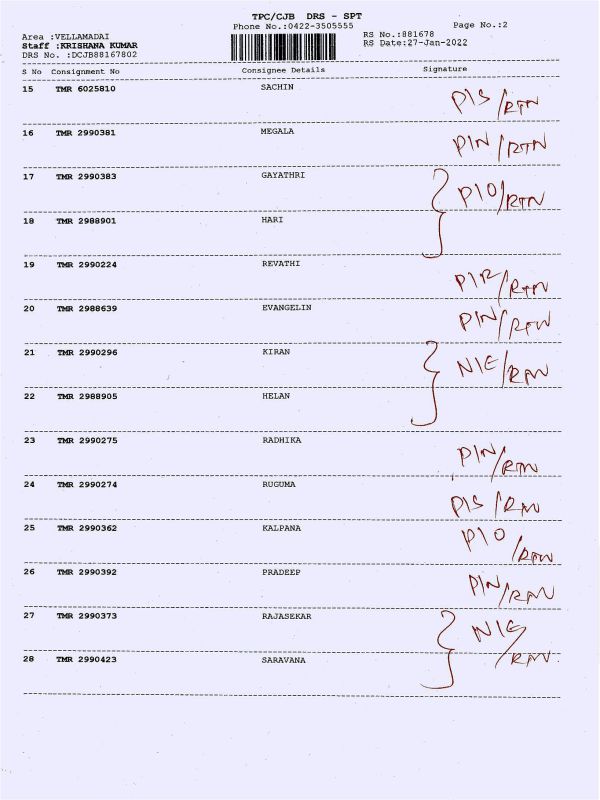 TPC/CJB DRS - SPT
Phone No.:0422-3505555
Page No.:2
Area :VELLAMADAI
RS No.:881678
Staff :KRISHANA KUMAR
RS Date:27-Jan-2022
DRS No. :DCJB88167802
S No Consignment No Consignee Details Signature
15 TMR 6025810 SACHIN P1S/RTN
16 TMR 2990381 MEGALA P1N/RTN
17 TMR 2990383 GAYATHRI P1O/RTN
18 TMR 2988901 HARI
19 TMR 2990224 REVATHI P1R/RTN
20 TMR 2988639 EVANGELIN P1N/RTN
21 TMR 2990296 KIRAN N1E/RTN
22 TMR 2988905 HELAN
23 TMR 2990275 RADHIKA P1N/RTN
24 TMR 2990274 RUGUMA P1S/RTN
25 TMR 2990362 KALPANA P1O/RTN
26 TMR 2990392 PRADEEP P1N/RTN
27 TMR 2990373 RAJASEKAR N1E/RTN
28 TMR 2990423 SARAVANA